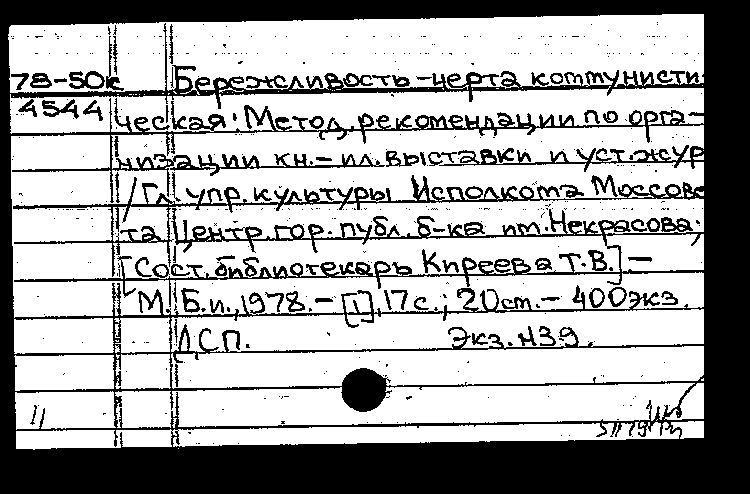 78-50к Бережливость-черта коммунисти-
4544 ческая: Метод. рекомендации по орга-
низации кн.-ил. выставки и уст. жур
/Гл. упр. культуры Исполкома Моссове
та Центр. гор. публ. б-ка им. Некрасова;
[Сост. библиотекарь Киреева Т.В.] —
М. Б.и., 1978. — [1], 17 с.; 20 см. — 400 экз.
ДСП. Экз. N39.
11